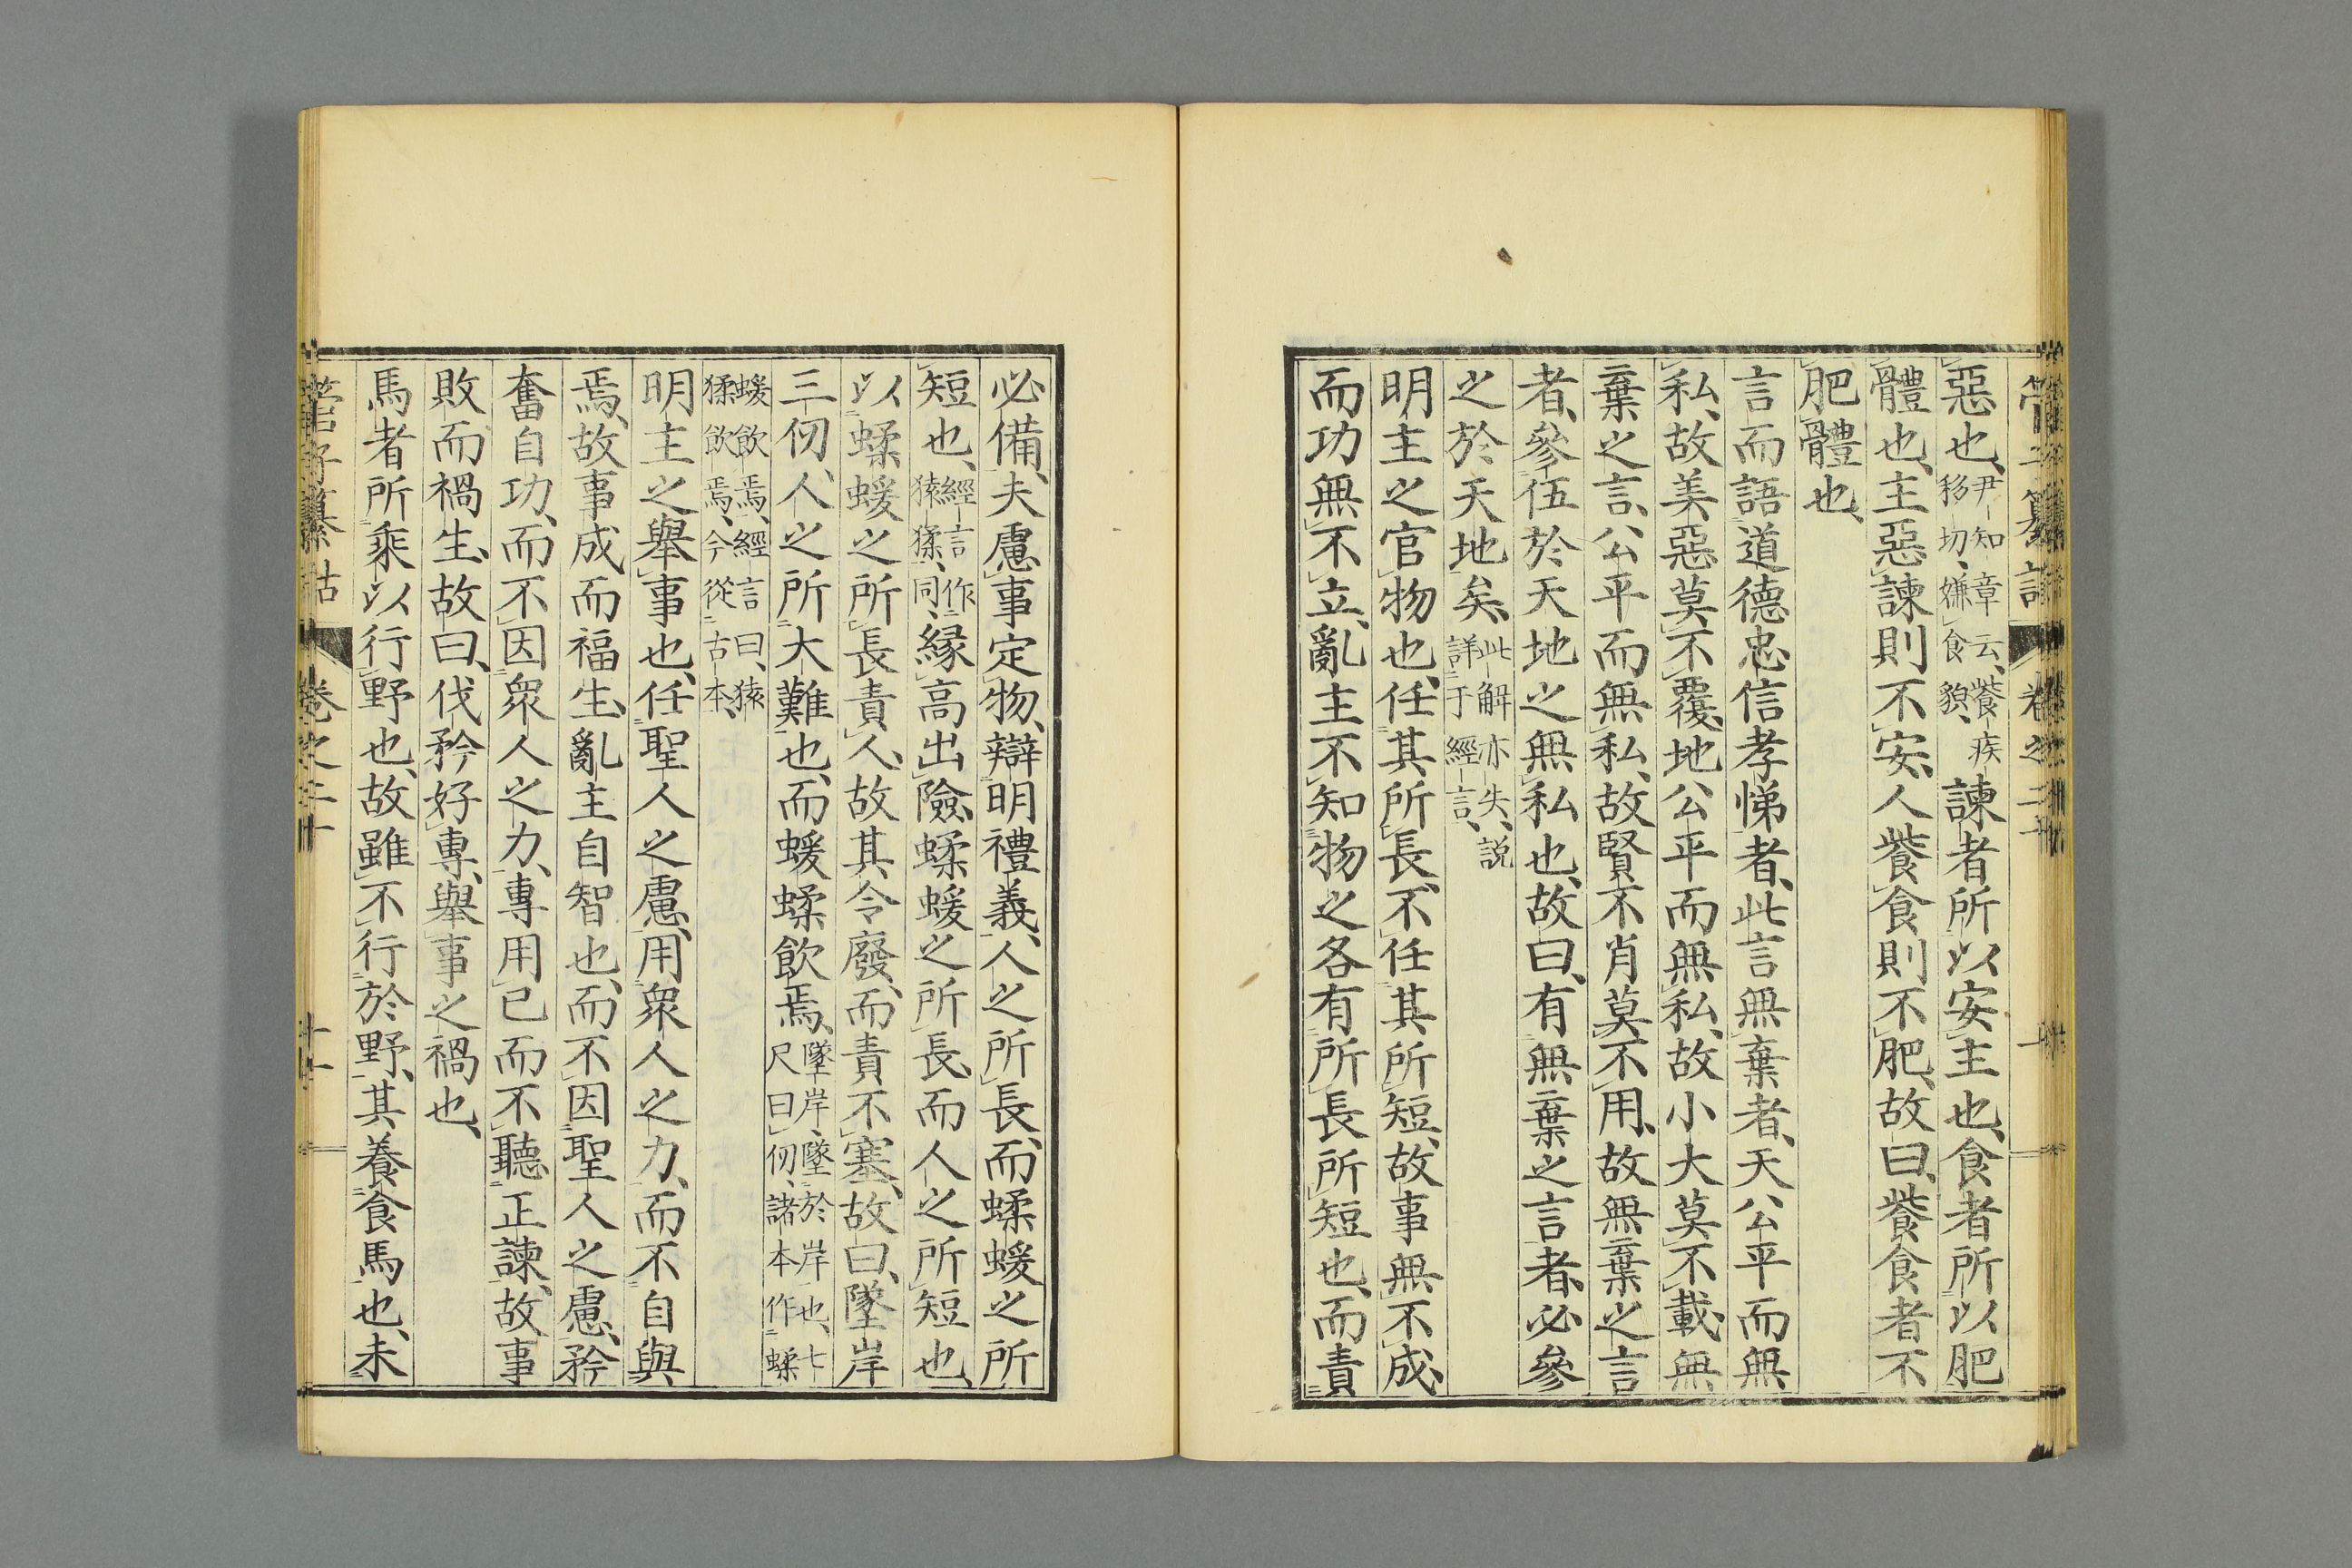 惡也、尹知章云、餥疾移切、嫌食貌、諫者所以安主也、食者所以肥
體也、主惡諫則不安、人餥食則不肥、故曰、餥食者不
肥體也、
言而語道德忠信孝悌者、此言無棄者、天公平而無
私、故美惡莫不覆、地公平而無私、故小大莫不載、無
棄之言、公平而無私、故賢不肖莫不用、故無棄之言
者、參伍於天地之無私也、故曰、有無棄之言者、必參
之於天地矣、此解亦失、説詳于經言、
明主之官物也、任其所長、不任其所短、故事無不成、
而功無不立、亂主不知物之各有所長所短也、而責
必備、夫慮事定物、辯明禮義、人之所長、而蝚蝯之所
短也、經言作猿猱、同、緣高出險、蝚蝯之所長、而人之所短也、
以蝚蝯之所長責人、故其令廢、而責不塞、故曰、墜岸
三仞、人之所大難也、而蝯蝚飲焉、墜岸、墜於岸也、七尺曰仞、諸本作蝚
蝯飲焉、經言曰、猿猱飲焉、今從古本、
明主之舉事也、任聖人之慮、用衆人之力、而不自與
焉、故事成而福生、亂主自智也、而不因聖人之慮、矜
奮自功、而不因衆人之力、專用已而不聽正諫、故事
敗而禍生、故曰、伐矜好專、舉事之禍也、
馬者所乘以行野也、故雖不行於野、其養食馬也、未
管子纂詁 卷之二十 十一